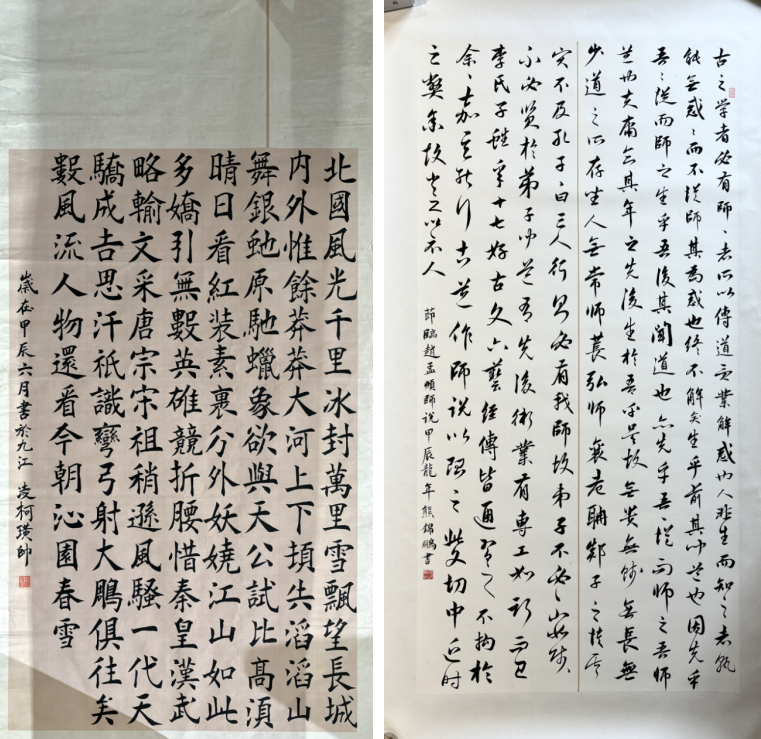 北國風光千里冰封萬里雪飄望長城
内外惟餘莽莽大河上下頓失滔滔山
舞銀虵原馳蠟象欲與天公試比高須
晴日看紅装素裹分外妖嬈江山如此
多嬌引無數英雄競折腰惜秦皇漢武
略輸文采唐宗宋祖稍遜風騷一代天
驕成吉思汗祇識彎弓射大鵰俱往矣
數風流人物還看今朝沁園春雪
歲在甲辰六月書於九江 凌柯師
古之学者必有師、者所以傳道受業解惑也人非生而知之者孰
能無惑、而不從師其為惑也終不解矣生乎前其聞道也固先乎
吾、從而師之生乎吾後其聞道也亦先乎吾、從而師之吾師
道也夫庸知其年之先後生於吾乎是故無贵無賤無長無
少道之所存聖人無常師萇弘師襄老聃郯子之徒其
賢不及孔子曰三人行則必有我師故弟子不必、如師
不必賢於弟子聞道有先後術業有專攻如斯而已
李氏子蟠年十七好古文六藝經傳皆通習之不拘於
余、嘉其能行古道作師说以貽之此文切中近时
之弊余故書之以示人
節臨趙孟頫師说甲辰龍年熊錦鵬書